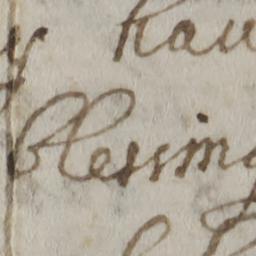 y hau
blessing